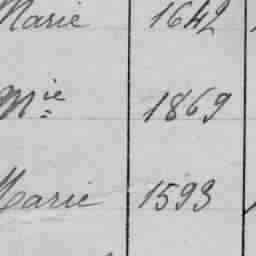 Marie 1642
Mie 1869
Marie 1593